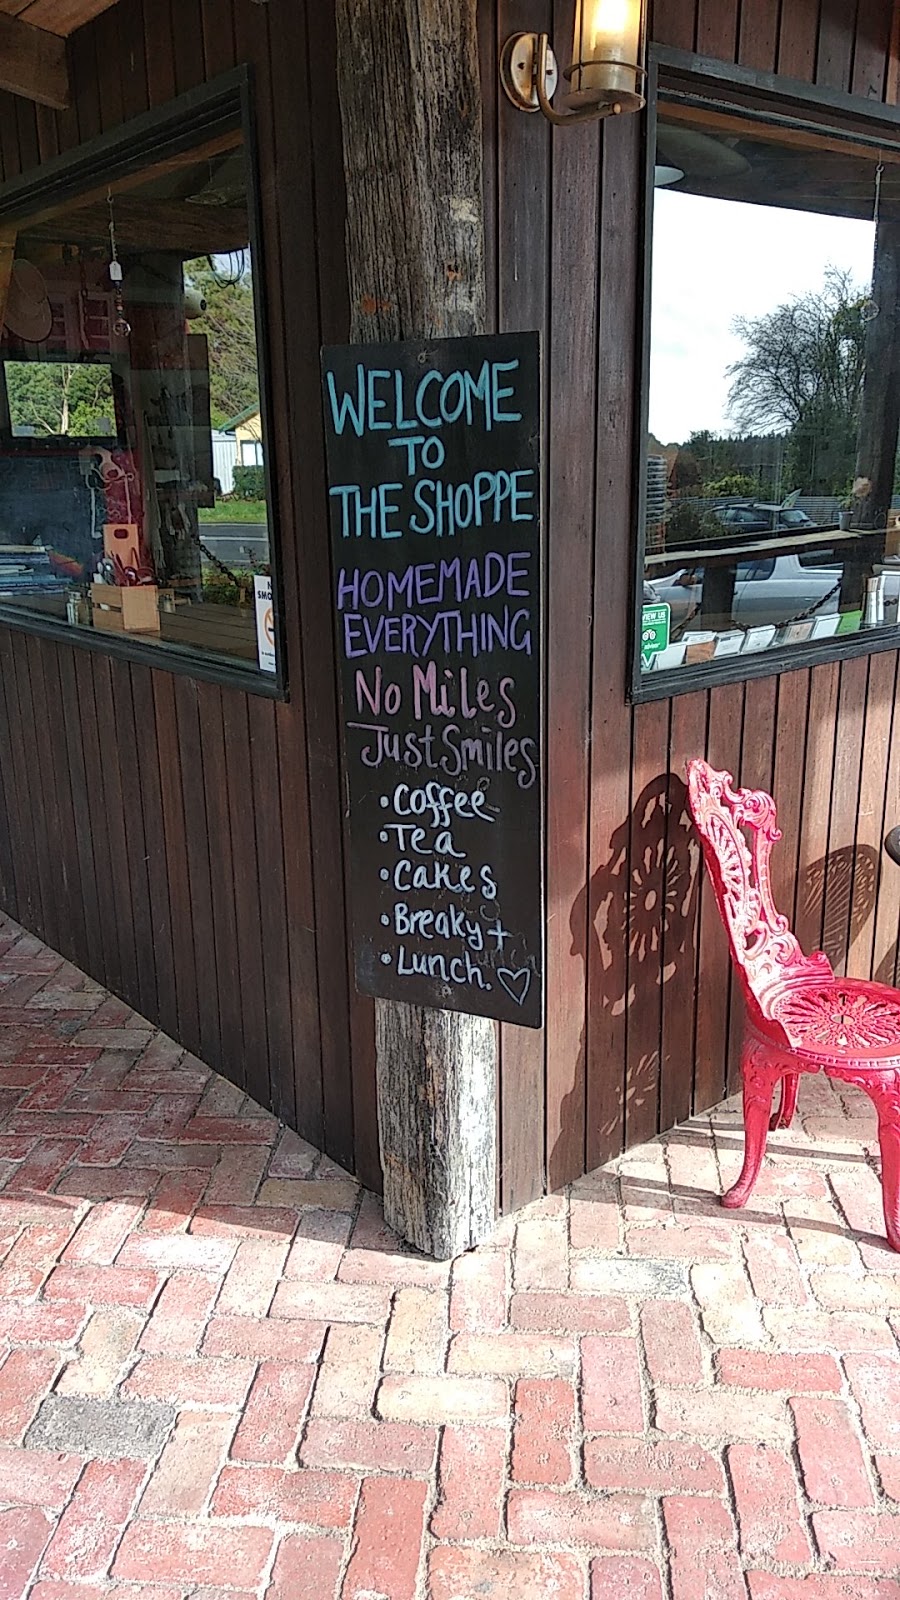 WELCOME
TO
THE SHOPPE
HOMEMADE
EVERYTHING
No Miles
Just Smiles
• Coffee
• Tea
• Cakes
• Breaky +
• Lunch. ♡